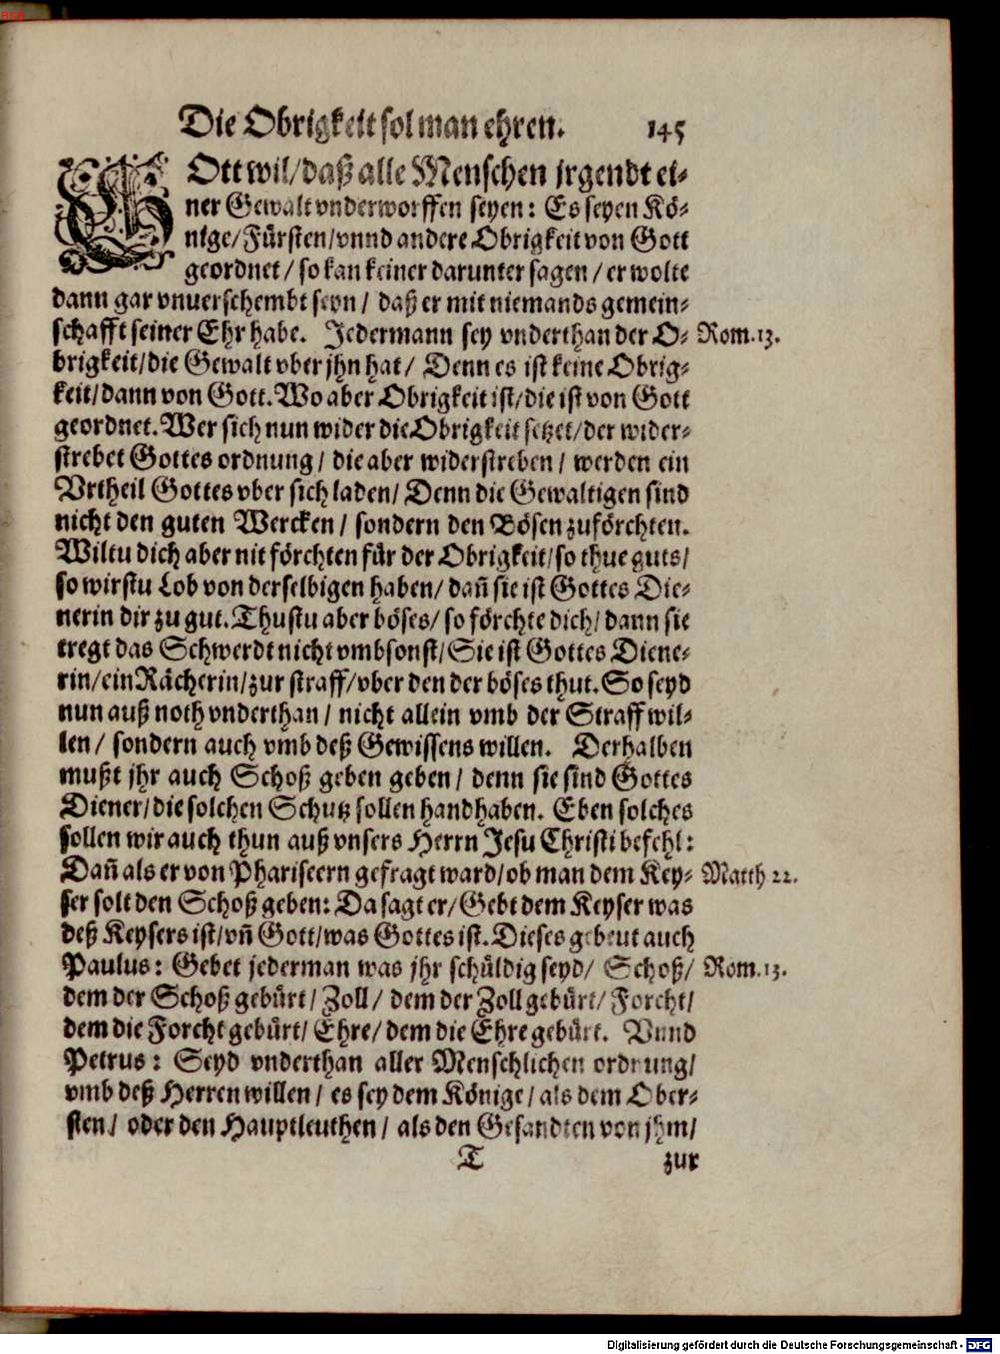 Die Obrigkeit sol man ehren. 145
GOtt wil/daß alle Menschen jrgendt ei-
ner Gewalt vnderworffen seyen: Es seyen Kö-
nige/Fürsten/vnnd andere Obrigkeit von Gott
geordnet/ so kan keiner darunter sagen/ er wolte
dann gar vnuerschembt seyn/ daß er mit niemands gemein-
schafft seiner Ehr habe. Jedermann sey vnderthan der O- Rom.13.
brigkeit/die Gewalt vber jhn hat/ Denn es ist keine Obrig-
keit/dann von Gott. Wo aber Obrigkeit ist/die ist von Gott
geordnet. Wer sich nun wider die Obrigkeit setzet/der wider-
strebet Gottes ordnung/ die aber widerstreben/ werden ein
Vrtheil Gottes vber sich laden/ Denn die Gewaltigen sind
nicht den guten Wercken/ sondern den Bösen zuförchten.
Wiltu dich aber nit förchten für der Obrigkeit/so thue guts/
so wirstu Lob von derselbigen haben/ dañ sie ist Gottes Die-
nerin dir zu gut. Thustu aber böses/ so förchte dich/ dann sie
tregt das Schwerdt nicht vmbsonst/ Sie ist Gottes Diene-
rin/ein Rächerin/zur straff/vber den der böses thut. So seyd
nun auß noth vnderthan/ nicht allein vmb der Straff wil-
len/ sondern auch vmb deß Gewissens willen. Derhalben
mußt jhr auch Schoß geben geben/ denn sie sind Gottes
Diener/die solchen Schutz sollen handhaben. Eben solches
sollen wir auch thun auß vnsers Herrn Jesu Christi befehl:
Dañ als er von Phariseern gefragt ward/ob man dem Key- Matth 22.
ser solt den Schoß geben: Da sagt er/Gebt dem Keyser was
deß Keysers ist/vñ Gott/was Gottes ist. Dieses gebeut auch
Paulus: Gebet jederman was jhr schüldig seyd/ Schoß/ Rom.13.
dem der Schoß gebürt/ Zoll/ dem der Zoll gebürt/ Forcht/
dem die Forcht gebürt/ Ehre/ dem die Ehre gebürt. Vnnd
Petrus: Seyd vnderthan aller Menschlichen ordnung/
vmb deß Herren willen/ es sey dem Könige/ als dem Ober-
sten/ oder den Hauptleuthen/ als den Gesandten von jhm/
T zur
Digitalisierung gefördert durch die Deutsche Forschungsgemeinschaft - DFG